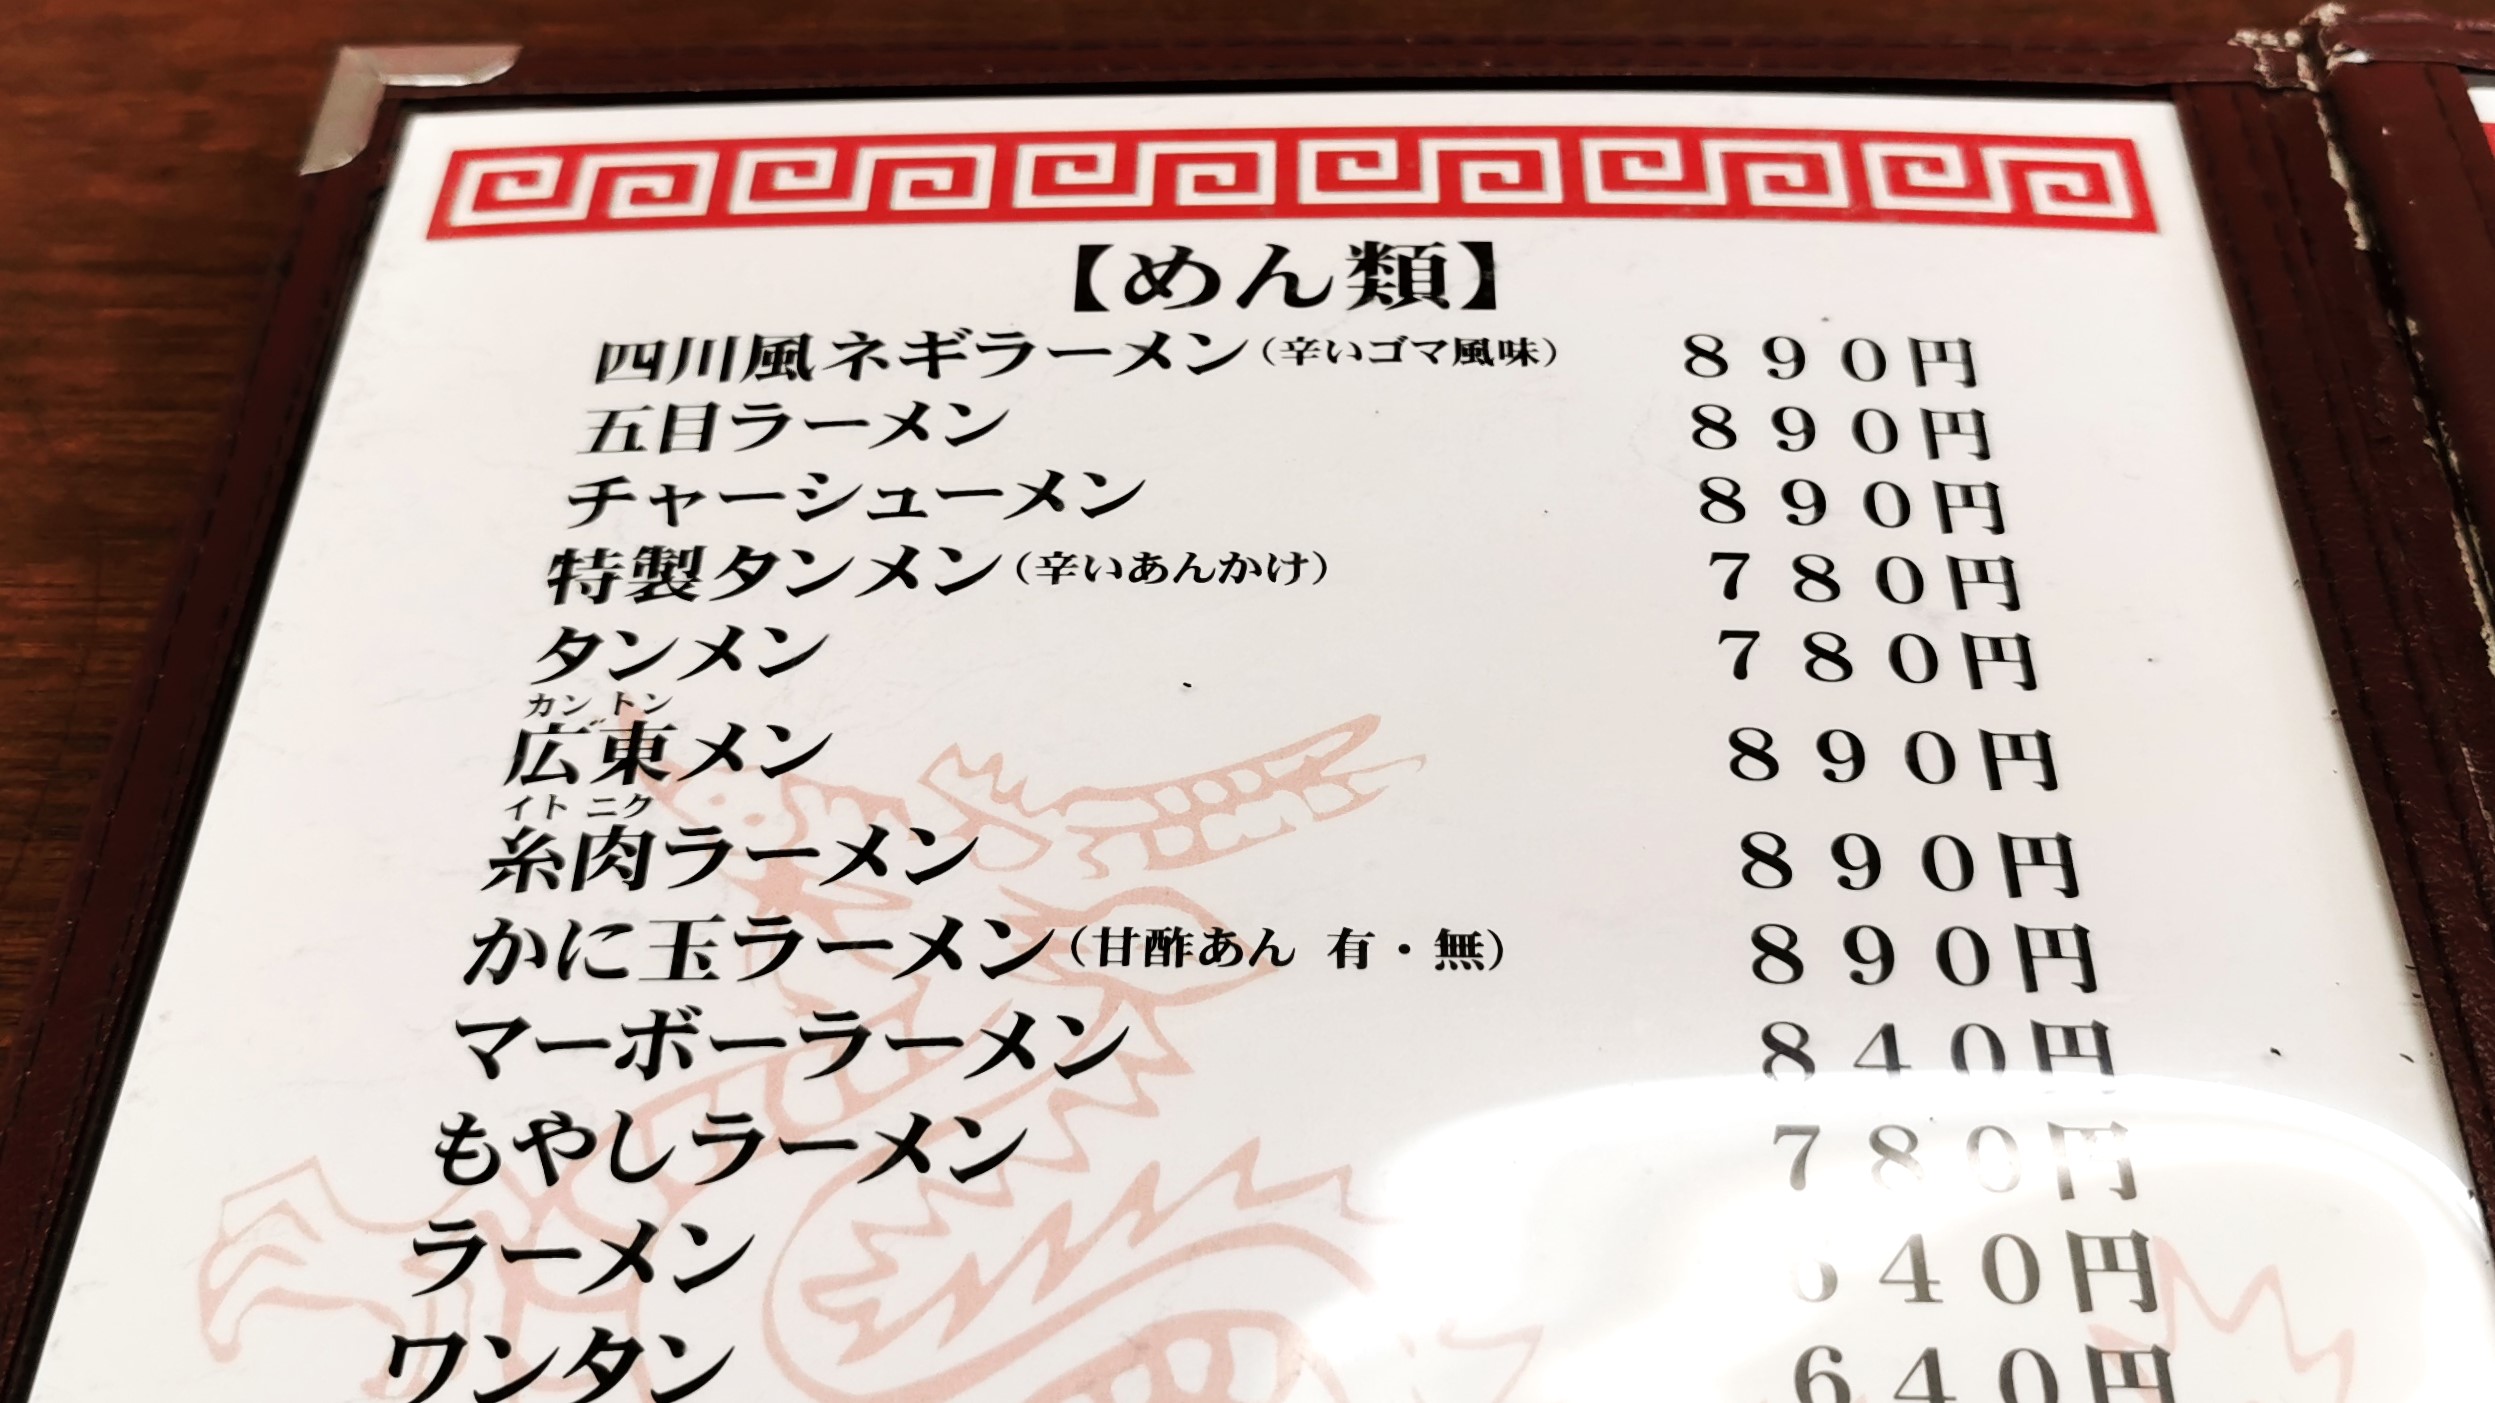 【めん類】
四川風ネギラーメン（辛いゴマ風味） 890円
五目ラーメン 890円
チャーシューメン 890円
特製タンメン（辛いあんかけ） 780円
タンメン 780円
カントン
広東メン 890円
イトニク
糸肉ラーメン 890円
かに玉ラーメン（甘酢あん 有・無） 890円
マーボーラーメン 840円
もやしラーメン 780円
ラーメン 640円
ワンタン 640円